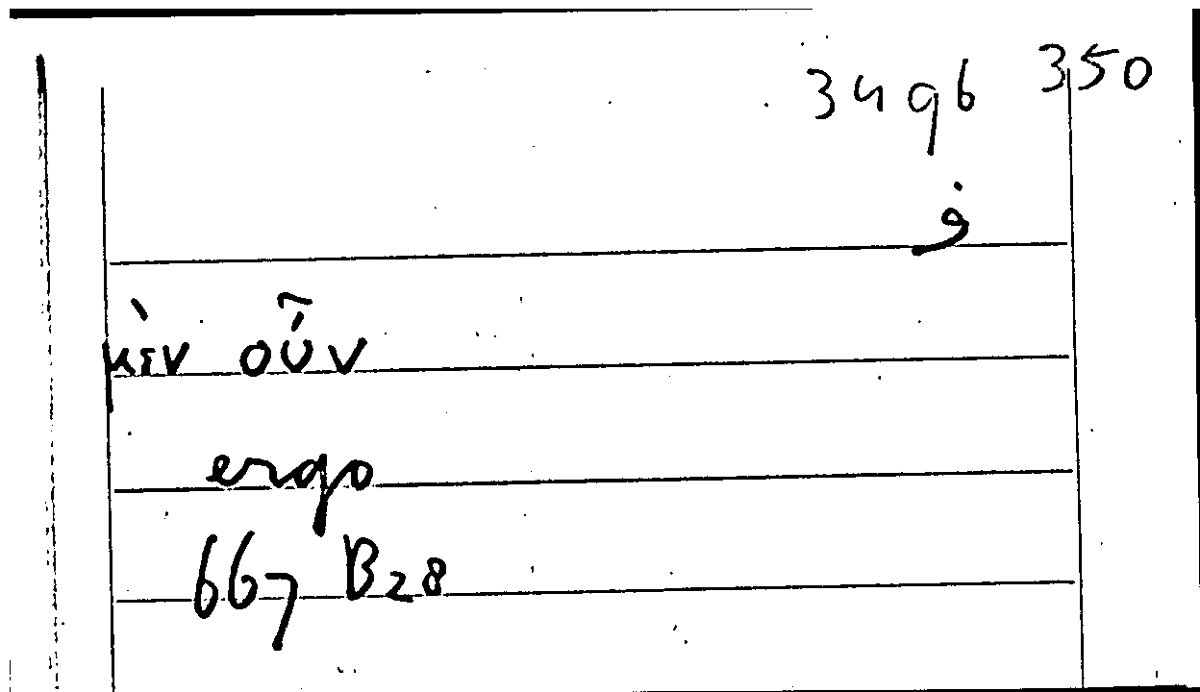 350
3496
ف
μὲν οὖν
ergo
667 B28